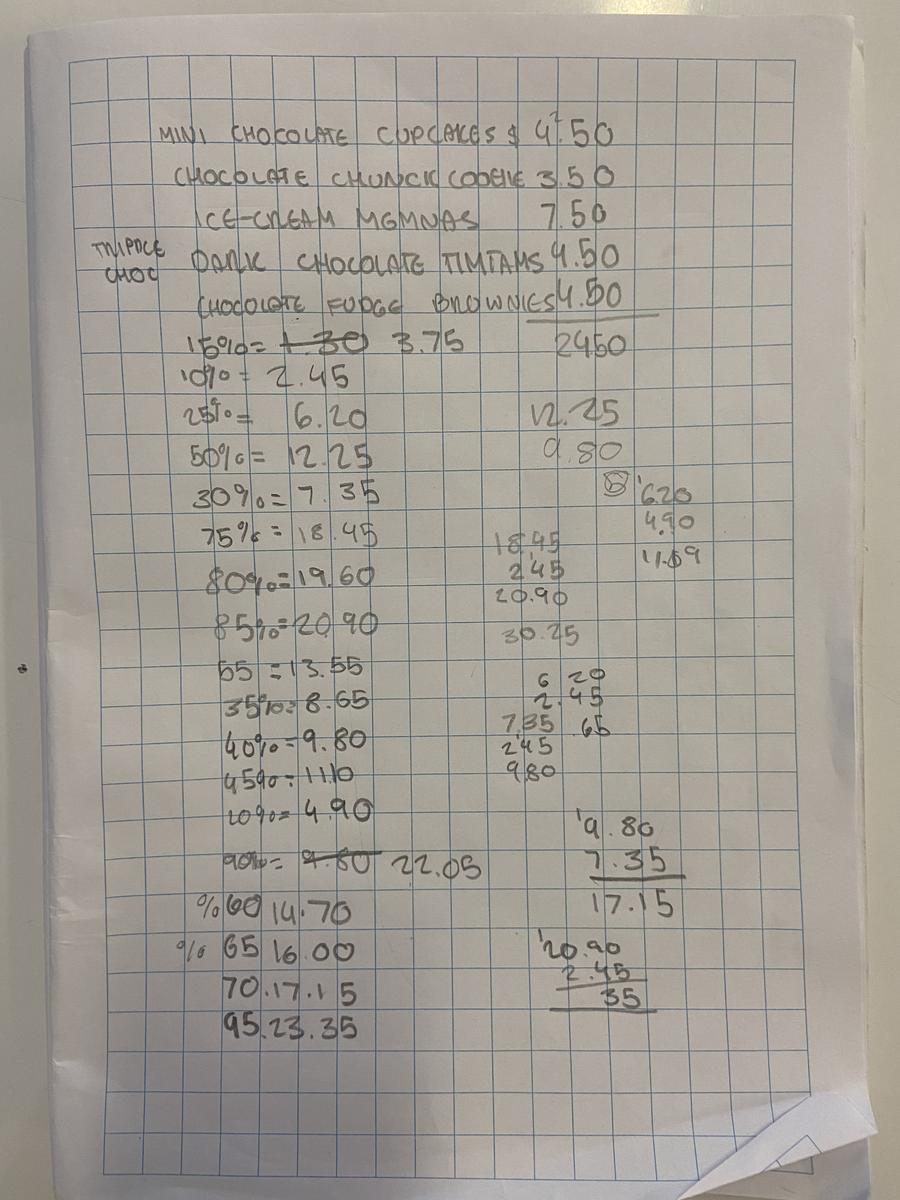 MINI CHOCOLATE CUPCAKES $ 4.50
CHOCOLATE CHUNCK COOEIE 3.50
ICE-CREAM MGMNAS 7.50
TRIPPLE CHOC DARK CHOCOLATE TIMTAMS 4.50
CHOCOLATE FUDGE BROWNIES 4.50
15%= 1.30 3.75 2450
10%= 2.45
25%= 6.20 12.25
50%= 12.25 9.80
30%= 7.35 6.20
75%= 18.45 18.45 4.90
80%=19.60 2.45
20.90
85%=20.90 30.25
55 =13.55 6 20
35%=8.65 2.45
7.35 .65
40%=9.80 2.45
45%=11.10 9.80
20%= 4.90
9.80
90%= 9.80 22.05 7.35
%60 14.70 17.15
% 65 16.00 20.90
2.45
70.17.15 35
95.23.35